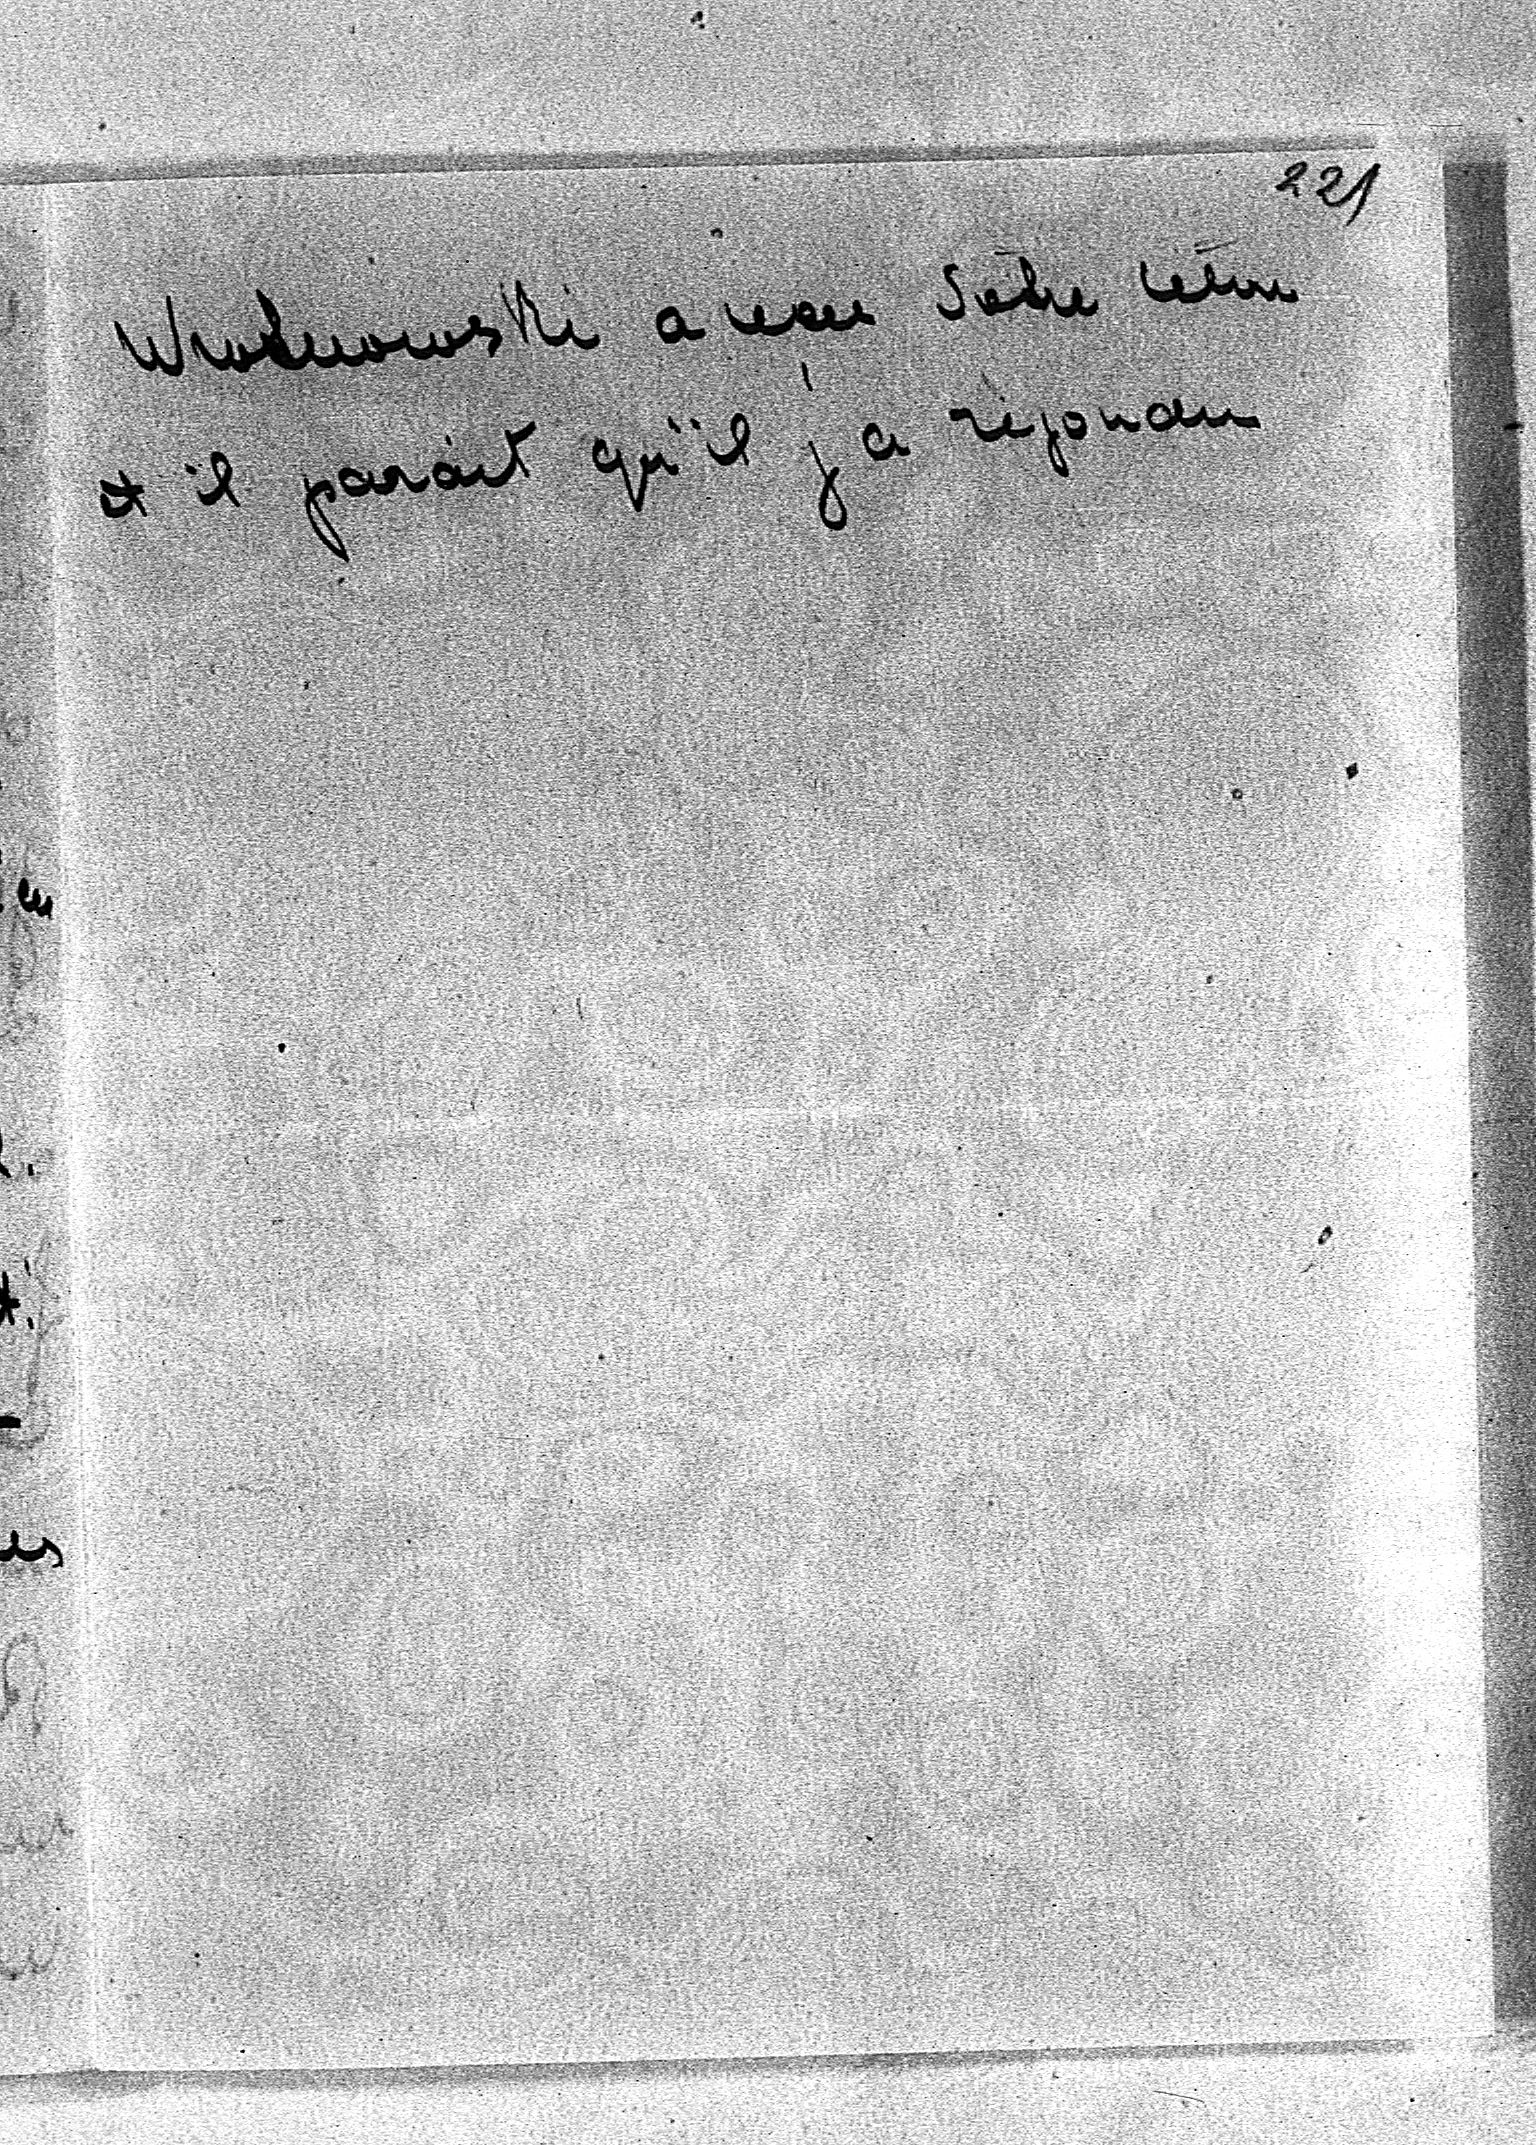 221
Wrotnowski a reçu Votre lettre
et il parait qu'il y a répondu